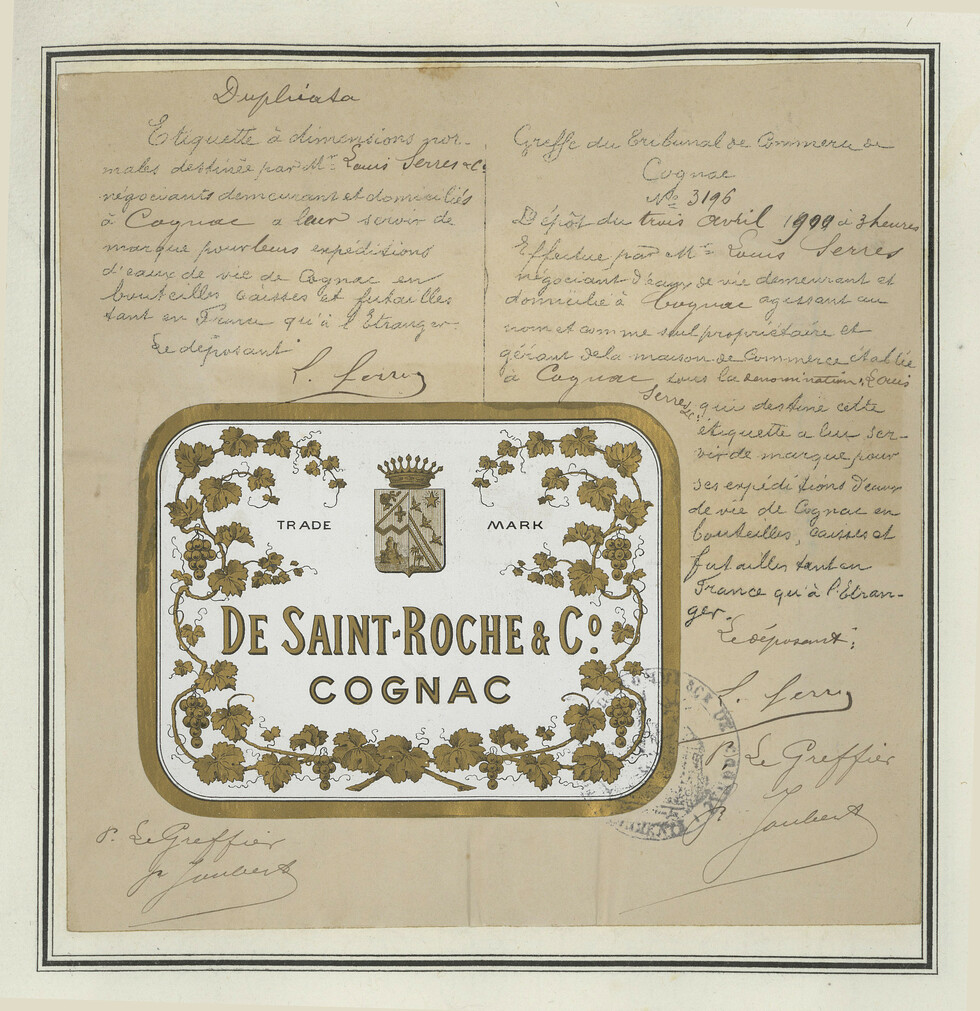 Duplicata
Etiquette à dimensions nor-
males destinée par Mr. Louis Serres & Co
négociants demeurant et domiciliés
à Cognac a leur servir de
marque pour leurs expéditions
d'eaux de vie de Cognac en
bouteilles, caisses et futailles
tant en France qu'à l'Etranger.
Le déposant
L. Serres
Greffe du Tribunal de Commerce de
Cognac
No 3196
Dépôt du trois avril à 3 heures
Effectué par Mr. Louis Serres
négociant d'eaux de vie demeurant et
domicilié à Cognac agissant au
nom et comme seul propriétaire et
gérant de la maison de Commerce établie
à Cognac sous la denomination, Louis
Serres & Co qui destine cette
étiquette a lui ser-
vir de marque pour
ses expéditions d'eaux
de vie de Cognac en
bouteilles, caisses et
futailles tant en
France qu'à l'Etran-
ger.
Le déposant:
L. Serres
P. Le Greffier
P. Joubert
TRADE MARK
DE SAINT-ROCHE & Co.
COGNAC
P. Le Greffier
P. Joubert